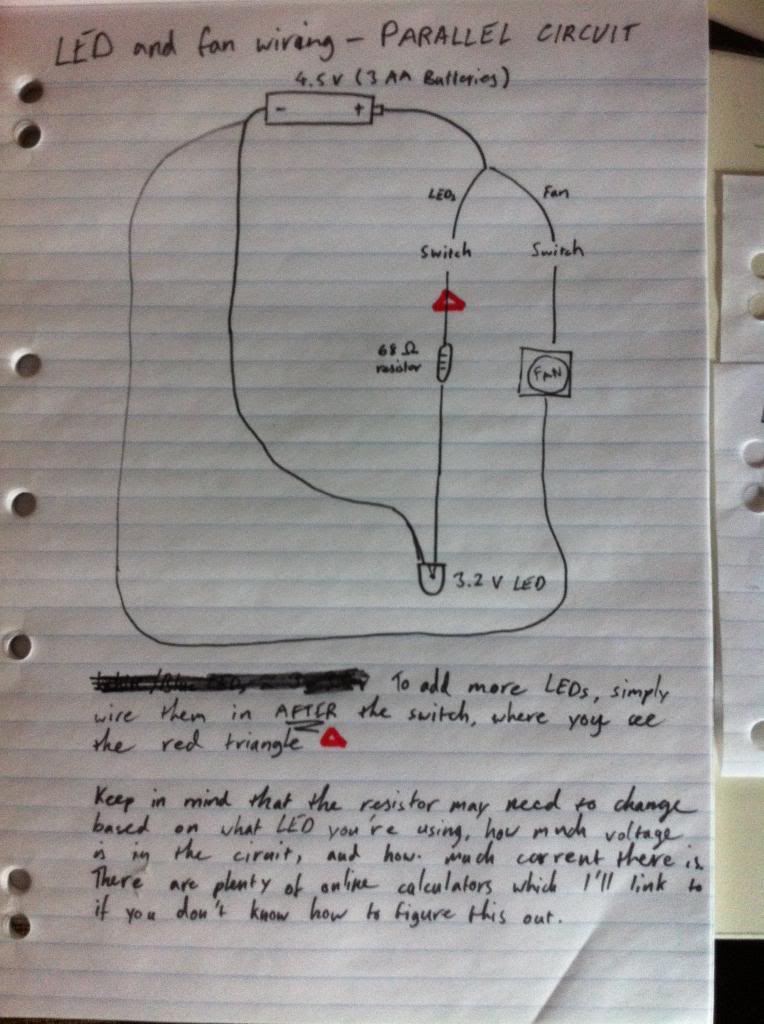 LED and fan wiring - PARALLEL CIRCUIT
4.5V (3 AA Batteries)
- +
LEDs Fan
Switch Switch
68 Ω
resistor
FAN
3.2 V LED
To add more LEDs, simply
wire them in AFTER the switch, where you see
the red triangle
Keep in mind that the resistor may need to change
based on what LED you're using, how much voltage
is in the circuit, and how much current there is.
There are plenty of online calculators which I'll link to
if you don't know how to figure this out.